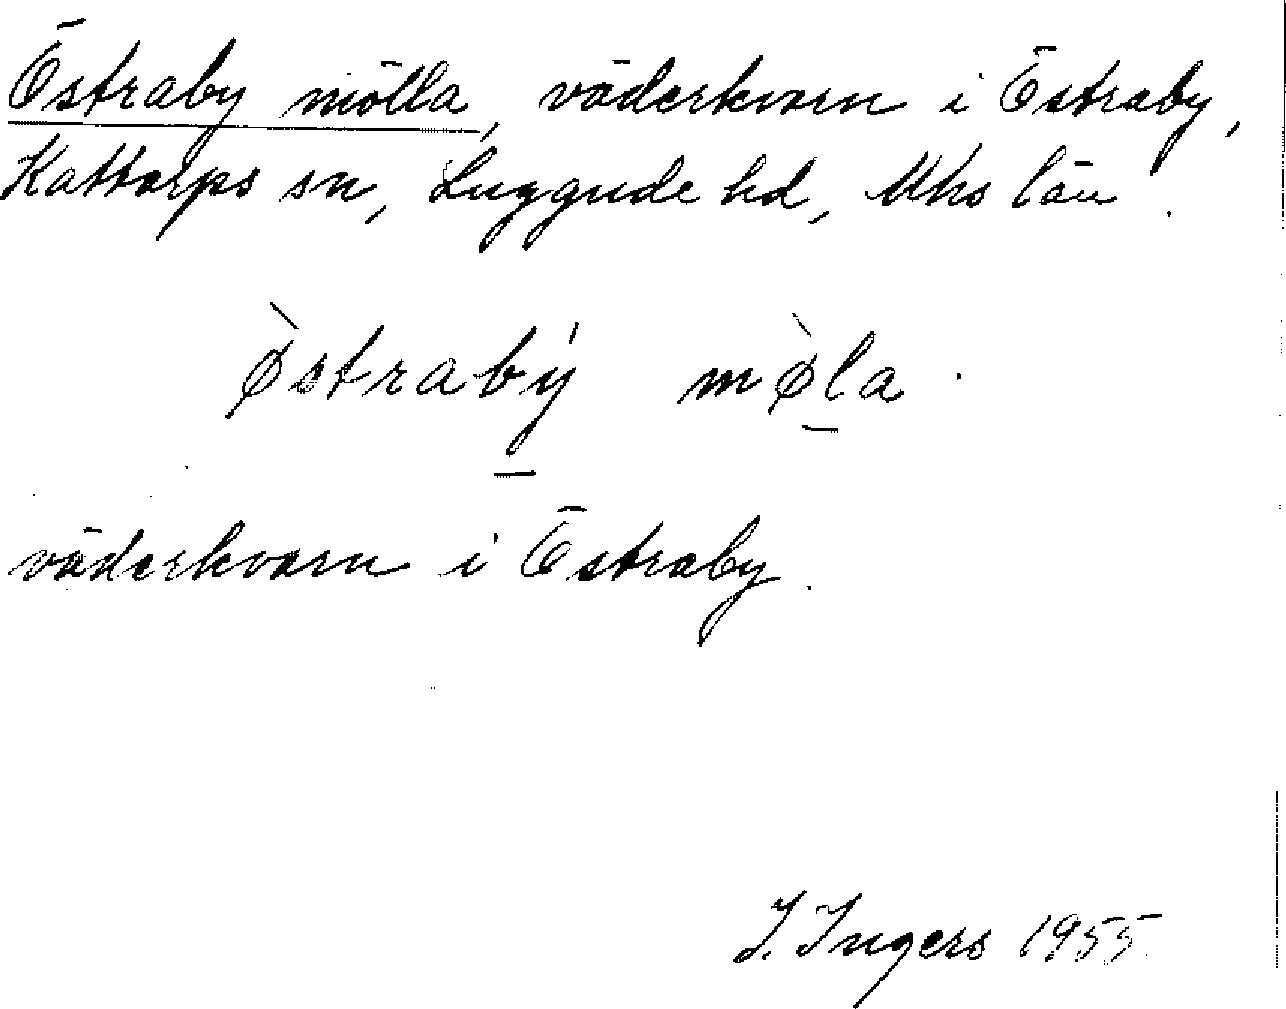 Östraby mölla, väderkvarn i Östraby,
Kattarps sn, Luggude hd, Mhs län.
ø̀strabý̠ mø̀l̠a.
väderkvarn i Östraby.
I. Ingers 1955